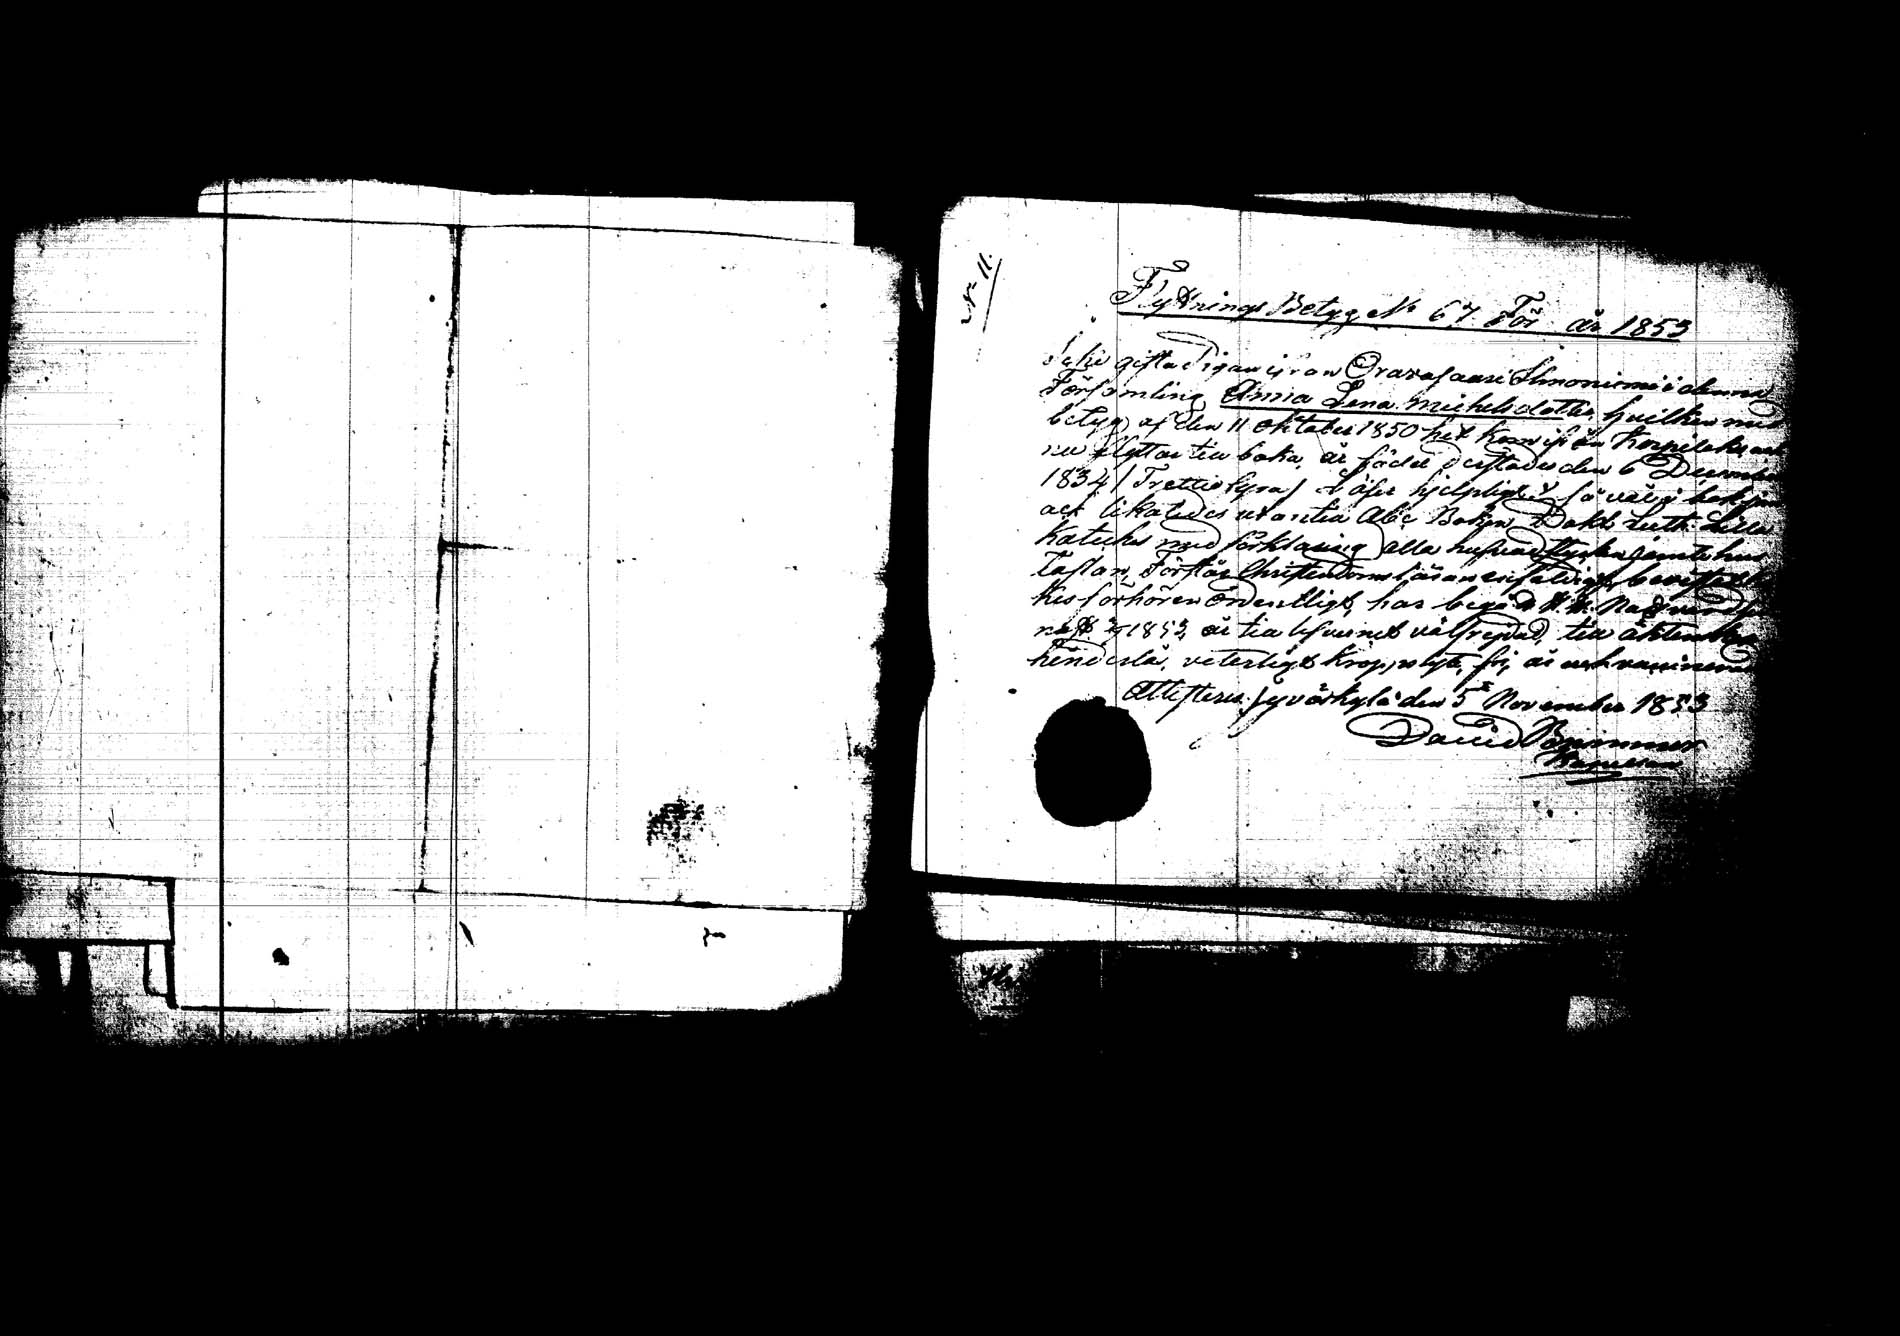 No 11.
Flyttnings Betyg No 67. För år 1853
gifta Pigan ifrån Oravasaari i denna
Församling Anna Lena Michelsdotter, hvilken med
betyg af den 11 Oktober 1850 hit kom ifrån Korpilaks och
nu flyttar till baka, är född derstädes den 6 December
1834 / Trettiofyra / Läser hjelpligt så väl i bok
likaledes utantill Abc Boken, Dokt Luth Lilla
Kateches med förklaring alla hufvudstycken jemte hus
taflan, Förstår Christendoms läran enfaldigt, bevistat
kesförhören ordentligt, har begått H. H. Nattvard
1853, är till lefvernet välfrejdad, till äktenskap
hinderslös, veterligt kroppslyte fri, är och vaccinerad
Attesteras Jyväskylä den 5 November 1853
David
Kapellan